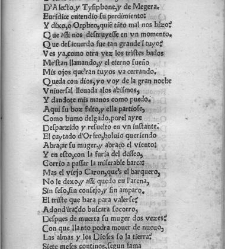 D'Alecto, y Tysiphone, y de Megera.
Euridice entendio su perdimiento:
Y dixo, ò Orpheo, quiẽ tãto mal nos hizo?
Que assi nos destruyesse en vn momento.
Que desacuerdo fue tan grande tuyo?
Ves ya, como otra vez los tristes hados
Mi stan llamando, y el eterno sueño
Mis ojos quebran tuyos va cerrando.
Queda con dios, que ya voy de la gran noche
Vniversal llenada a los abismos,
Y dandote mis manos como puedo.
Aqui su boz fixo, y alla, en partiendo,
Como humo delgado, por el ayre
Desparzido y resuelto en vn instante.
El cuytado d'Orfeo, boluio queriendo
Abraçar su muger, y abraço el viento:
Y en esto, con la furia del deseo,
Corrio a passar la miserable barca:
Mas el viejo Caron, que's el barquero,
No le dexo, y assi quedo en l'arena,
Sin seso, sin consejo, y sin amparo.
El triste que hara para valerse?
Adond'ira? do buscara socorro,
Despues de muerta su muger dos vezes?
Con que llãto podra mouer de nueuo,
Las almas y los Dioses so la tierra?
Siete meses continos, segun fama